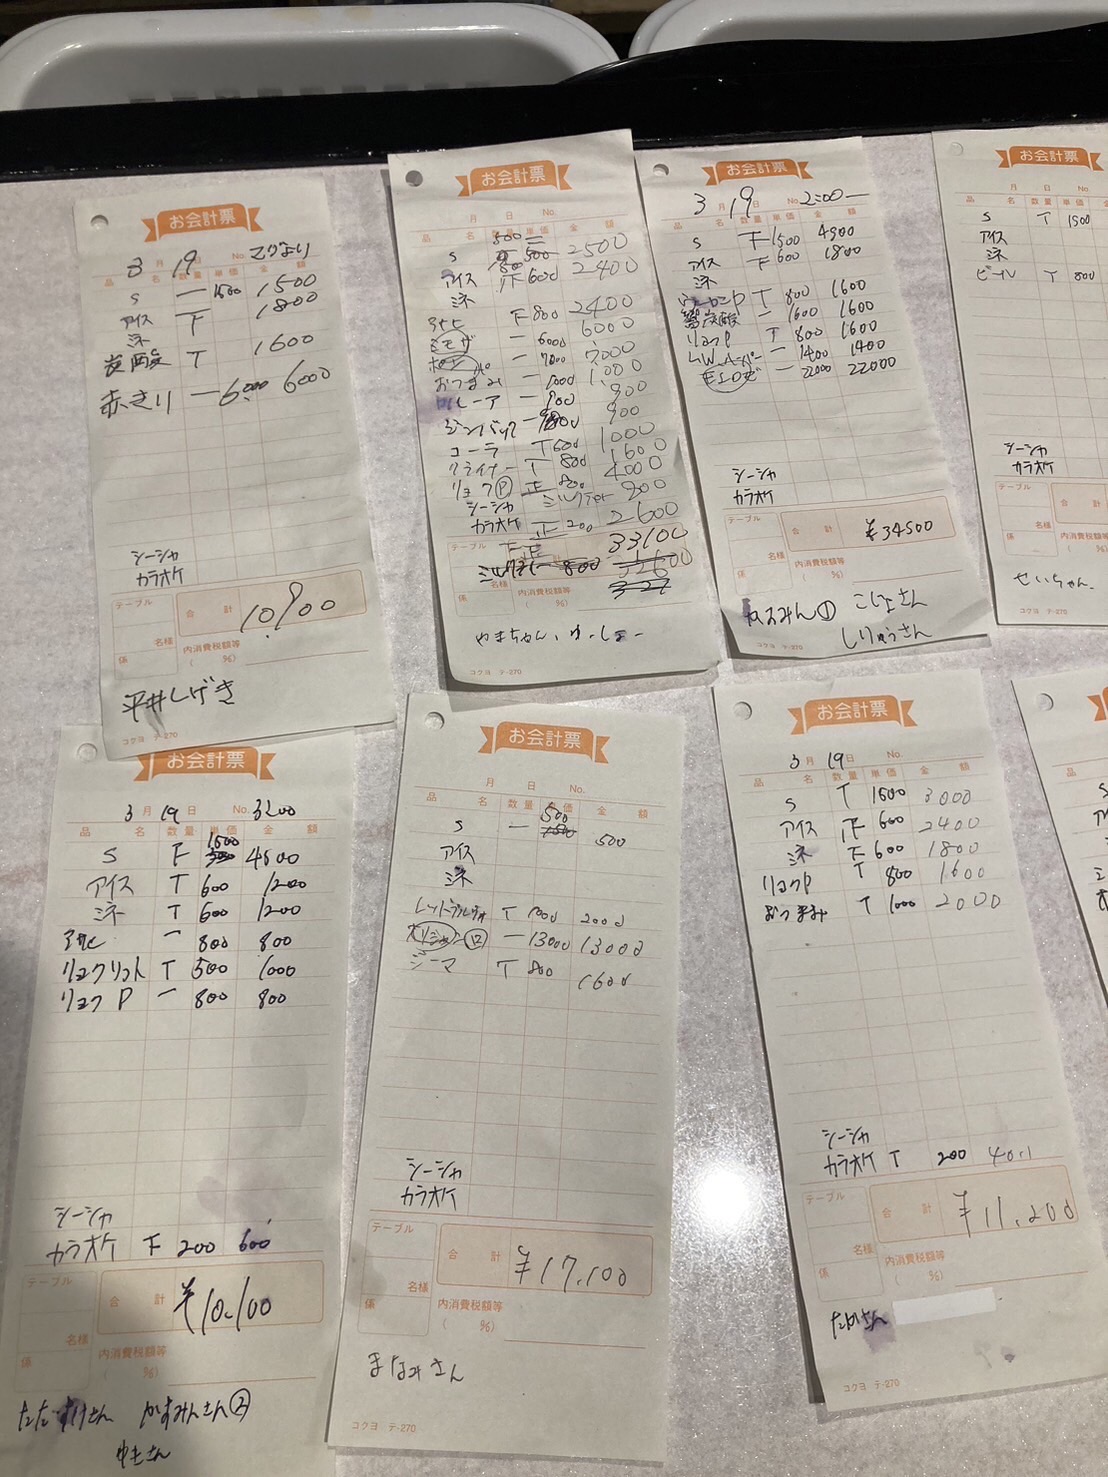 お会計票
3月19日 No.
品名 数量 単価 金額
S 一 1500 1,500
アイス 下 1800
ミネ
炭酸 T 1600
赤きり 一 6,000 6000
シーシャ
カラオケ
テーブル 名様 係
合計 10,900
内消費税額等 ( %)
平井しげき
コクヨ テ-270
お会計票
月 日 No.
品名 数量 単価 金額
S 500 2500
アイス 正 600 2400
ミネ
アサヒ 下 800 2400
ミモザ 一 6000 6000
一 7000 7,000
おつまみ 一 1000 1,000
一 900 900
ジンバック 一 900 900
コーラ T 500 1000
クライナー T 800 1600
リョクⓅ 正 800 4000
シーシャ ミルクティ 800
カラオケ 正 200 2600
テーブル 名様 係
33100
内消費税額等 ( %)
やまちゃん、ゆ
コクヨ テ-270
お会計票
3月19日 No.2200
品名 数量 単価 金額
S 下 1500 4500
アイス 下 600 1800
ミネ
T 800 1600
炭酸 一 1600 1600
リョクP T 800 1600
一 1400 1400
モエロゼ 一 22000 22000
シーシャ
カラオケ
テーブル 名様 係
合計 ¥34500
内消費税額等 ( %)
かすみん① こじょさん
しりゅうさん
コクヨ テ-270
お会計票
月 日 No.
品名 数量 単価 金
S T 1500
アイス
ミネ
ビール T 800
シーシャ
カラオケ
テーブル 名様 係
合計
内消費税額等 ( %)
せいちゃん
コクヨ テ-270
お会計票
3月19日 No.3200
品名 数量 単価 金額
S 下 1500 4500
アイス T 600 1200
ミネ T 600 1200
アサヒ 一 800 800
リョクリット T 500 1000
リョクP 一 800 800
シーシャ
カラオケ 下 200 600
テーブル 名様 係
合計 ¥10,100
内消費税額等 ( %)
ただすけさん かすみんさん②
ゆきさん
お会計票
月 日 No.
品名 数量 単価 金額
S 一 500 500
アイス
ミネ
T 1000 2000
オリシャン⑫ 一 13000 13000
ジーマ T 800 1600
シーシャ
カラオケ
テーブル 名様 係
合計 ¥17,100
内消費税額等 ( %)
まなみさん
コクヨ テ-270
お会計票
3月19日 No.
品名 数量 単価 金額
S T 1500 3000
アイス 正 600 2400
ミネ 下 600 1800
リョクP T 800 1600
おつまみ T 1000 2000
シーシャ
カラオケ T 200 400
テーブル 名様 係
合計 ¥11,200
内消費税額等 ( %)
たかさん
コクヨ テ-270